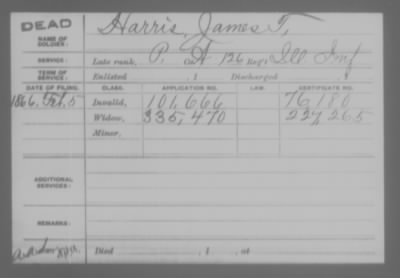 DEAD
NAME OF SOLDIER: Harris, James T.
SERVICE: Late rank, P. Co. 126 Reg't Ill Inf
TERM OF SERVICE: Enlisted , 1 Discharged , 1
DATE OF FILING. CLASS. APPLICATION NO. LAW. CERTIFICATE NO.
1866. Feb. 5 Invalid, 101,666 76,180
Widow, 335,470 227,265
Minor,
ADDITIONAL SERVICES:
REMARKS:
Died , 1 , at